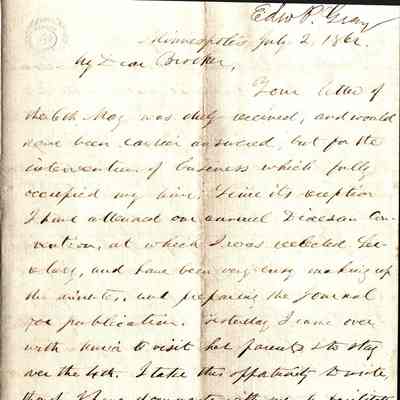 Edw P. Gray
Minneapolis July 2, 1862.
My Dear Brother,
Your letter of
the 6th May was duly received, and would
have been earlier answered, but for the
intervention of business which fully
occupied my time. Since its reception
I have attended our annual Diocesan Con-
vention, at which I was reelected Sec-
retary, and have been very busy making up
the minutes, and preparing the Journal
for publication. Yesterday I came over
with to visit her parents & to stay
over the 4th. I take this opportunity to write,